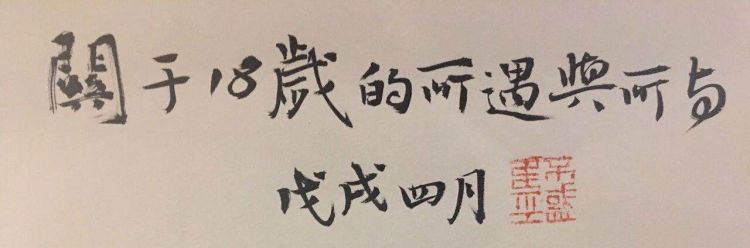 關于18歲的所遇與所与
戊戌四月